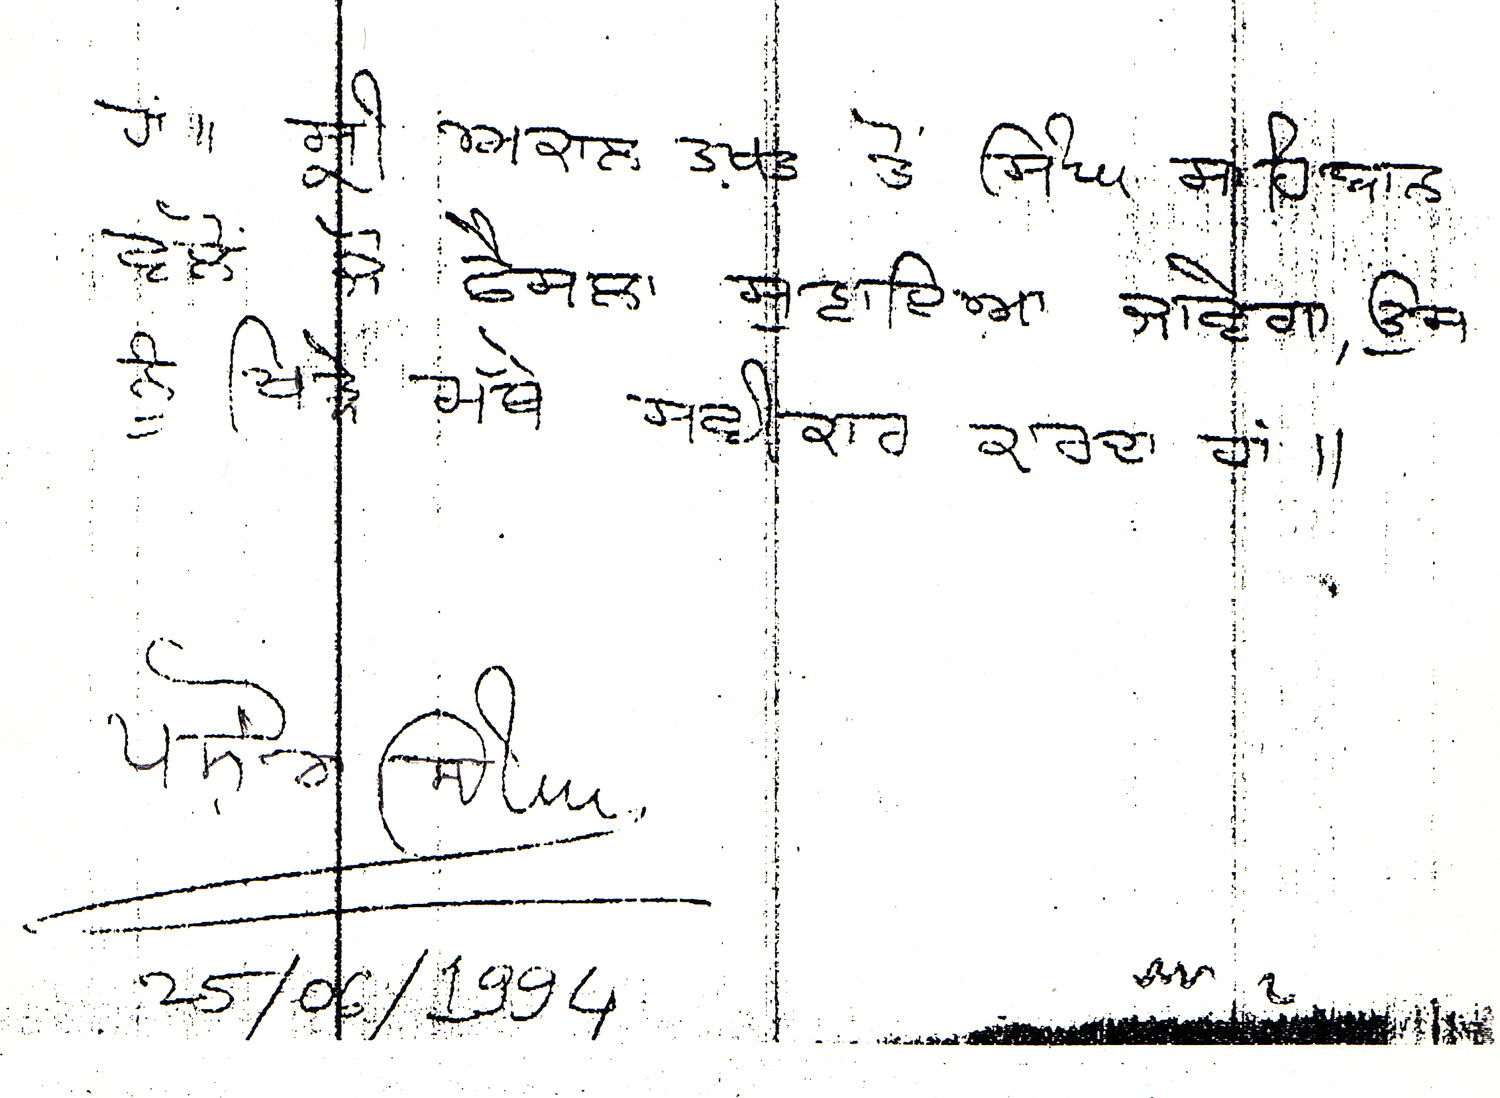 ਹਾਂ॥ ਸ੍ਰੀ ਅਕਾਲ ਤਖ਼ਤ ਤੋਂ ਸਿੰਘ ਸਾਹਿਬਾਨ
ਵੱਲੋਂ ਜੋ ਫੈਸਲਾ ਸੁਣਾਇਆ ਜਾਵੇਗਾ, ਉਸ
ਨੂੰ ਖਿੜੇ ਮੱਥੇ ਸਵੀਕਾਰ ਕਰਦਾ ਹਾਂ॥
ਪਸ਼ੌਰਾ ਸਿੰਘ
25/06/1994